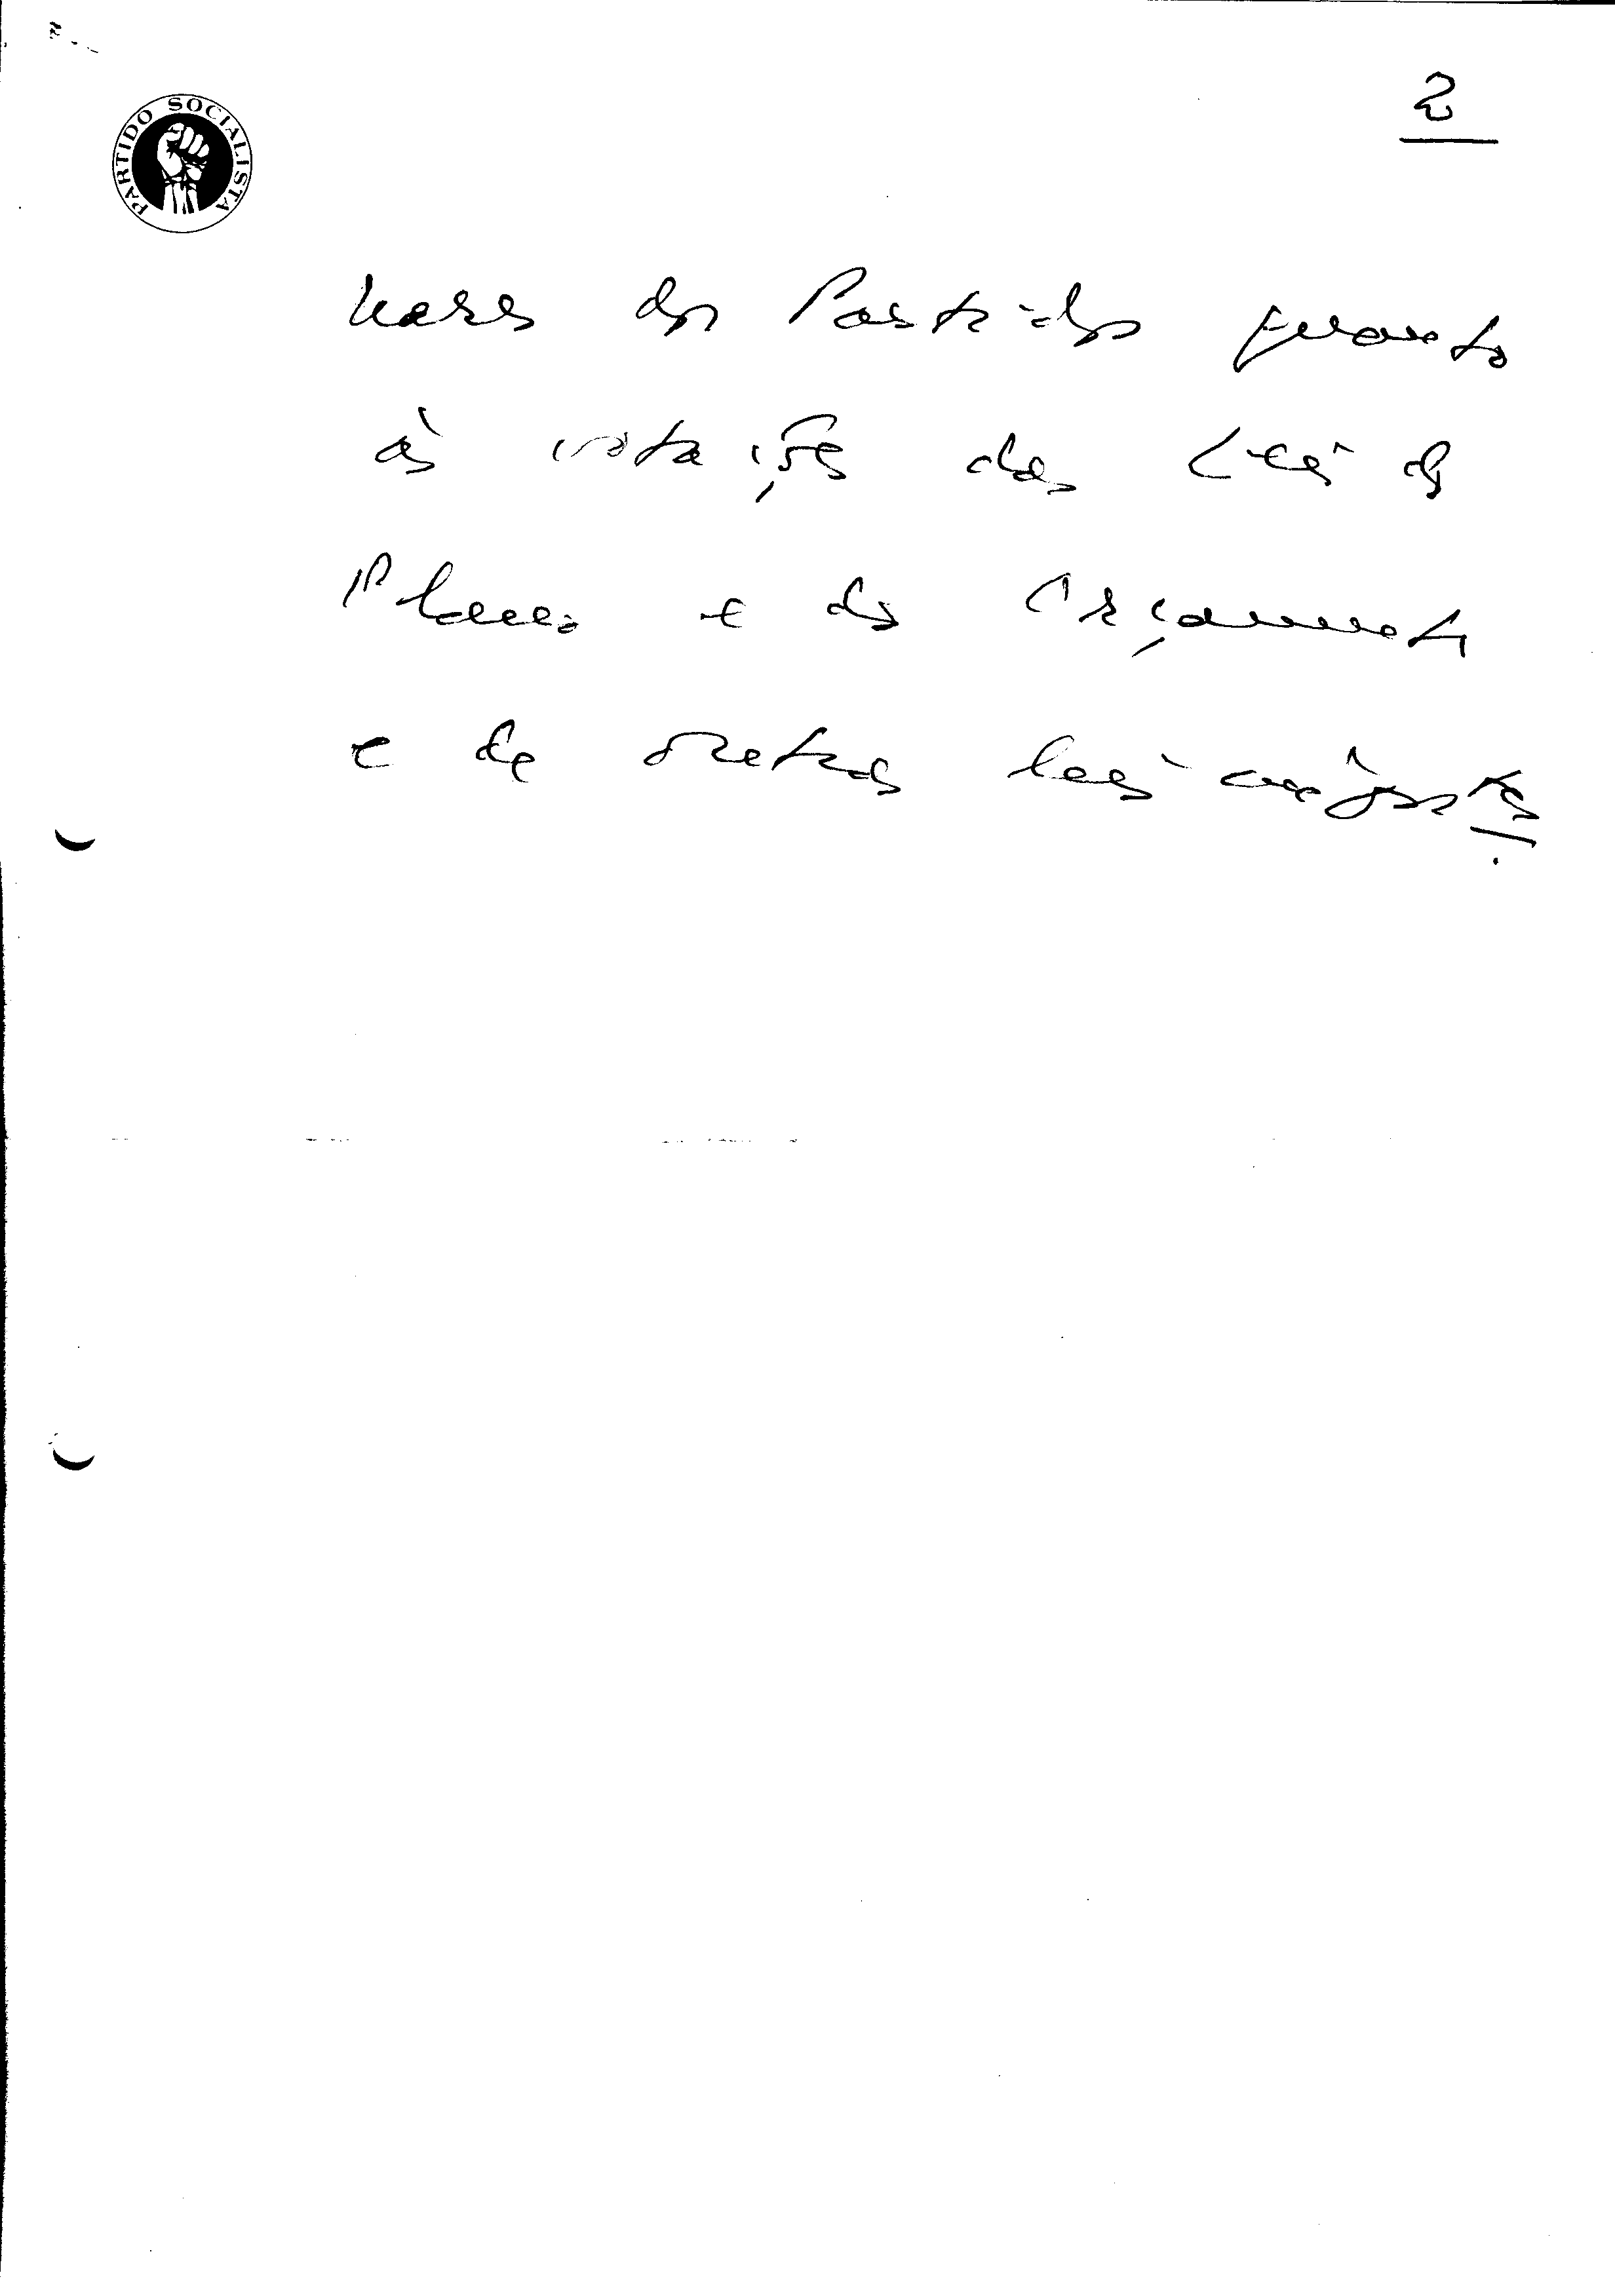 PARTIDO SOCIALISTA
2
nares dos Partidos quanto
às votações das Leis do
Plano e do Orçamento
e de outras leis importantes.